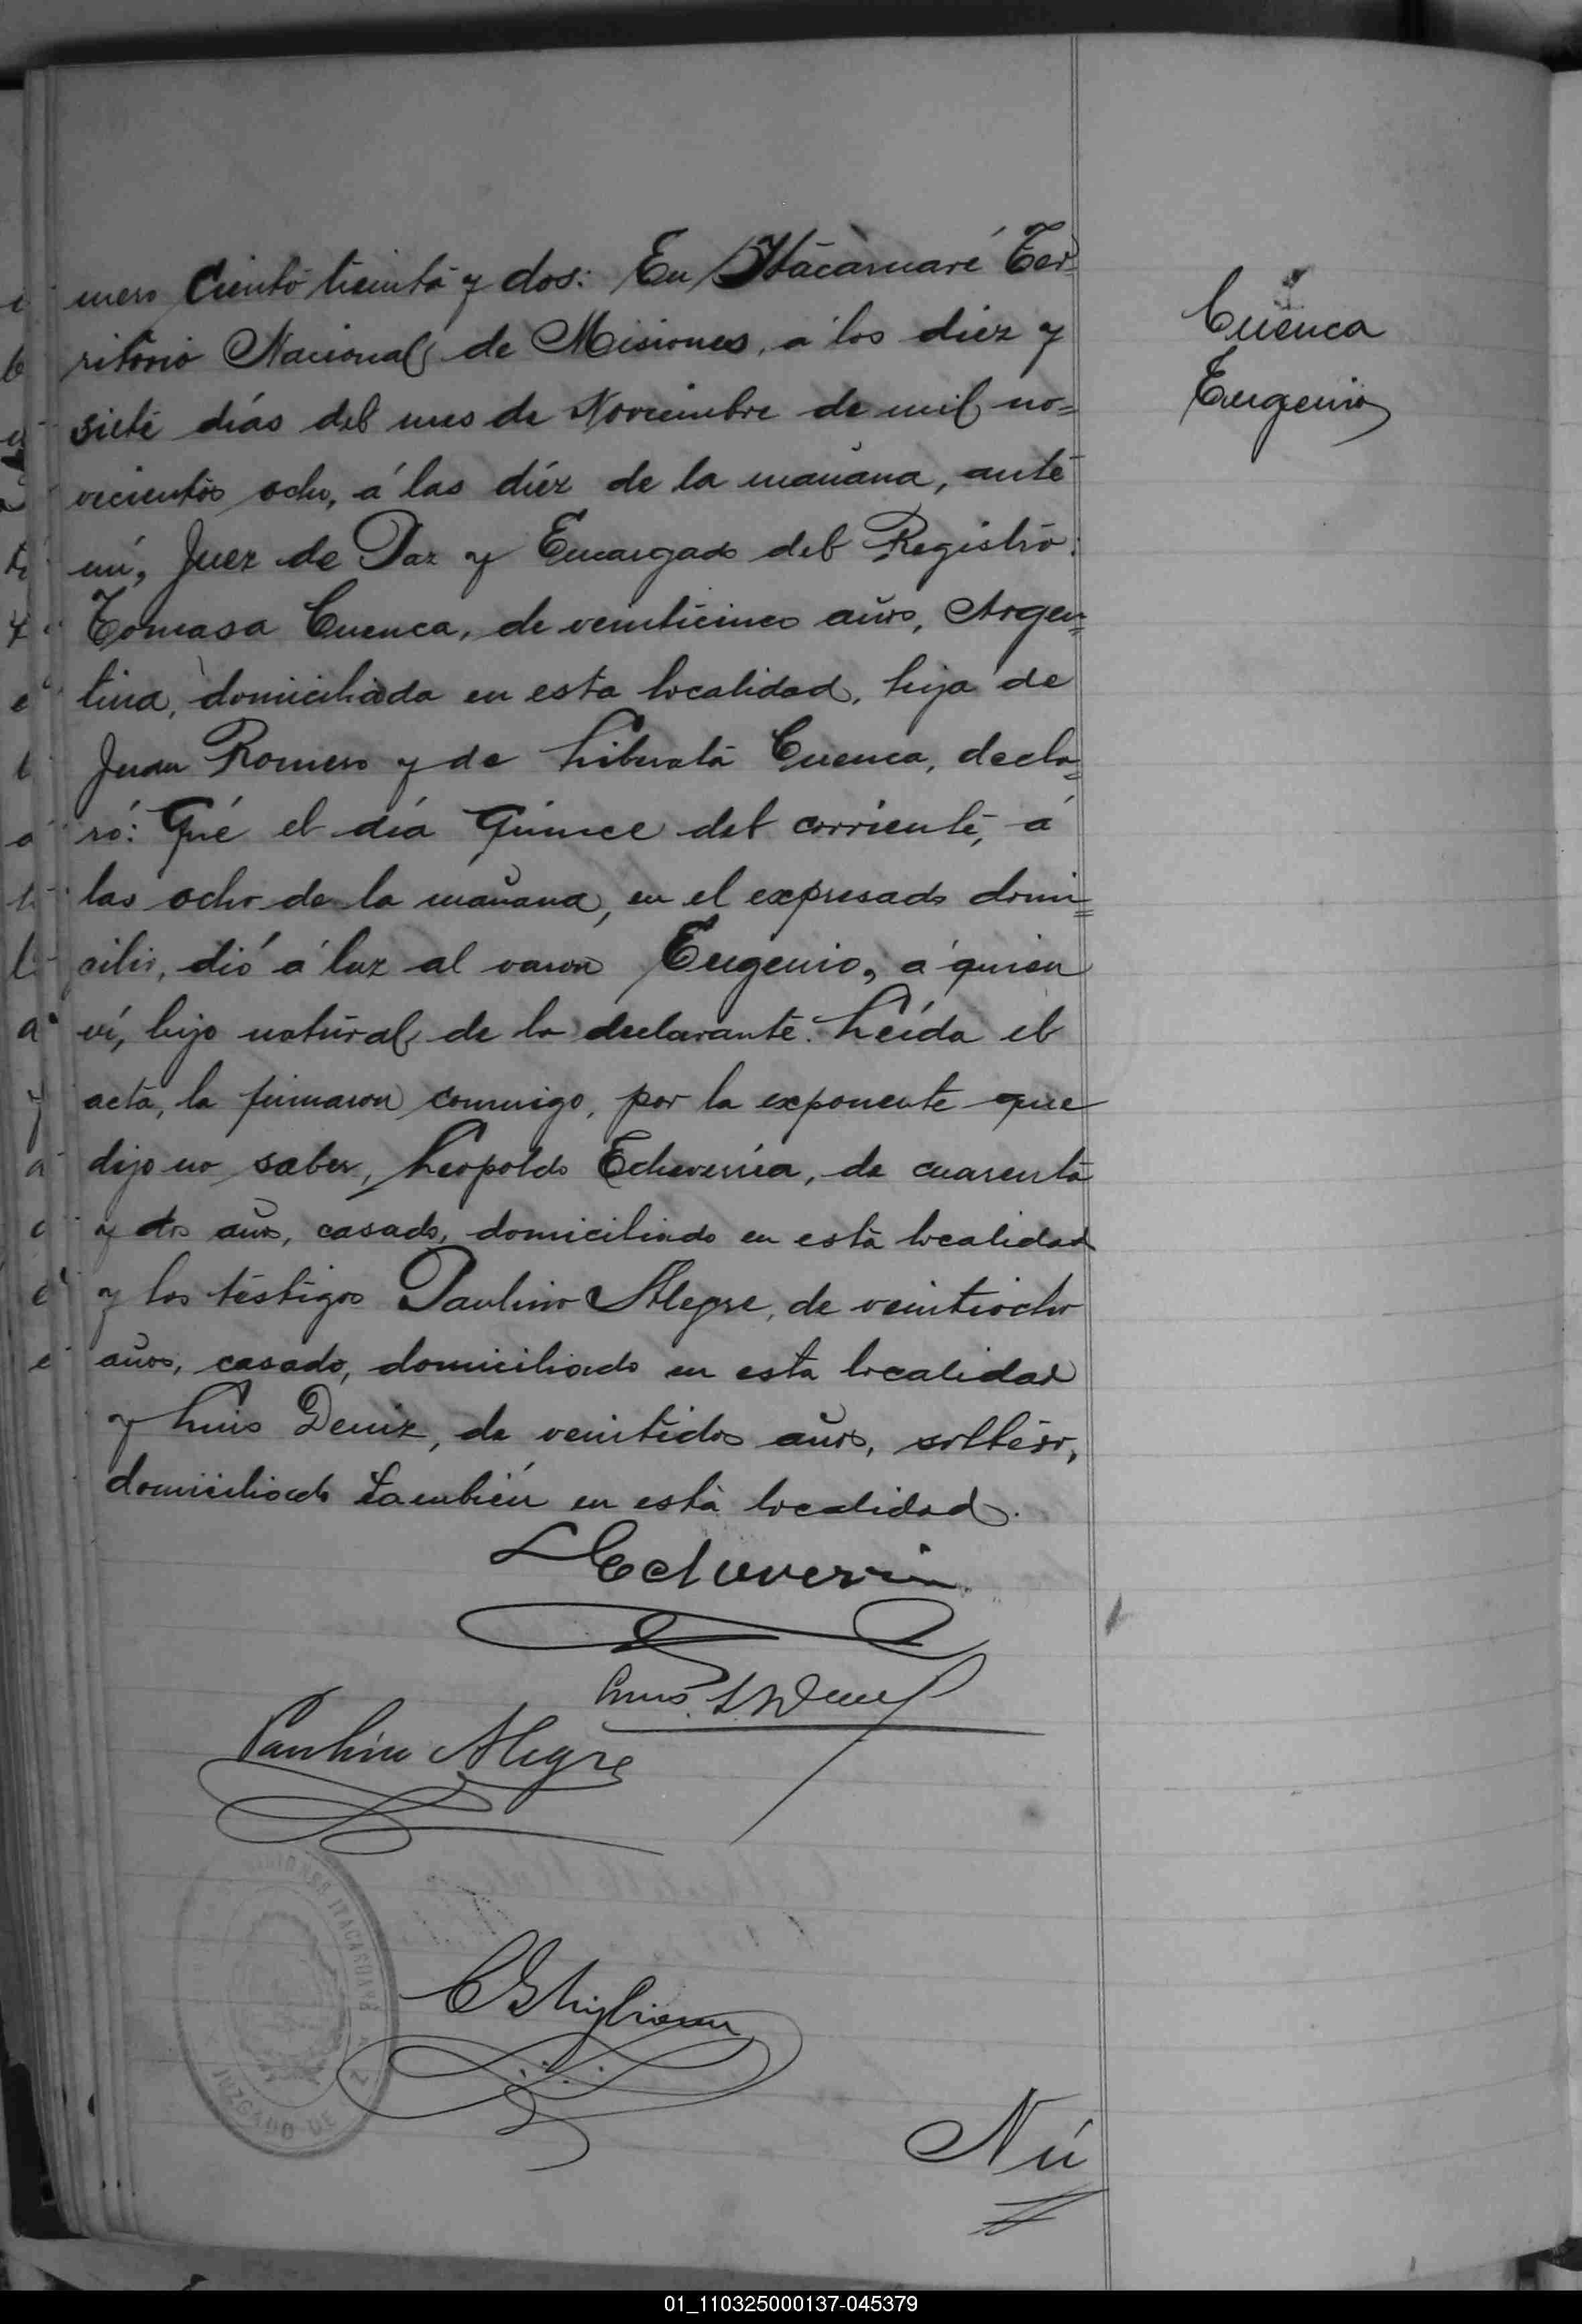 mero Ciento treinta y dos: En Itacaruaré Ter=
ritorio Nacional de Misiones, a los diez y
siete días del mes de Noviembre de mil no=
vecientos ocho, á las diéz de la mañana, ante
mí, Juez de Paz y Encargado del Registro:
Tomasa Cuenca, de veinticinco años, Argen=
tina, domiciliada en esta localidad, hija de
Juan Romero y de Liberata Cuenca, decla=
ró: Qué el día Quince del corriente, á
las ocho de la mañana, en el expresado domi=
cilio, dió á luz al varon Eugenio, á quien
ví, hijo natural de la declarante. Leída el
acta, la firmaron conmigo, por la exponente que
dijo no saber, Leopoldo Echeverría, de cuarenta
y dos años, casado, domiciliado en esta localidad
y los testigos Paulino Alegre, de veintiocho
años, casado, domiciliado en esta localidad
y Luis Deniz, de veintidos años, soltero,
domiciliado también en esta localidad.
Cuenca
Eugenio
L Echeverria
Luis
Paulino Alegre
ITACARUARÉ
JUZGADO DE
Nú
01_110325000137-045379